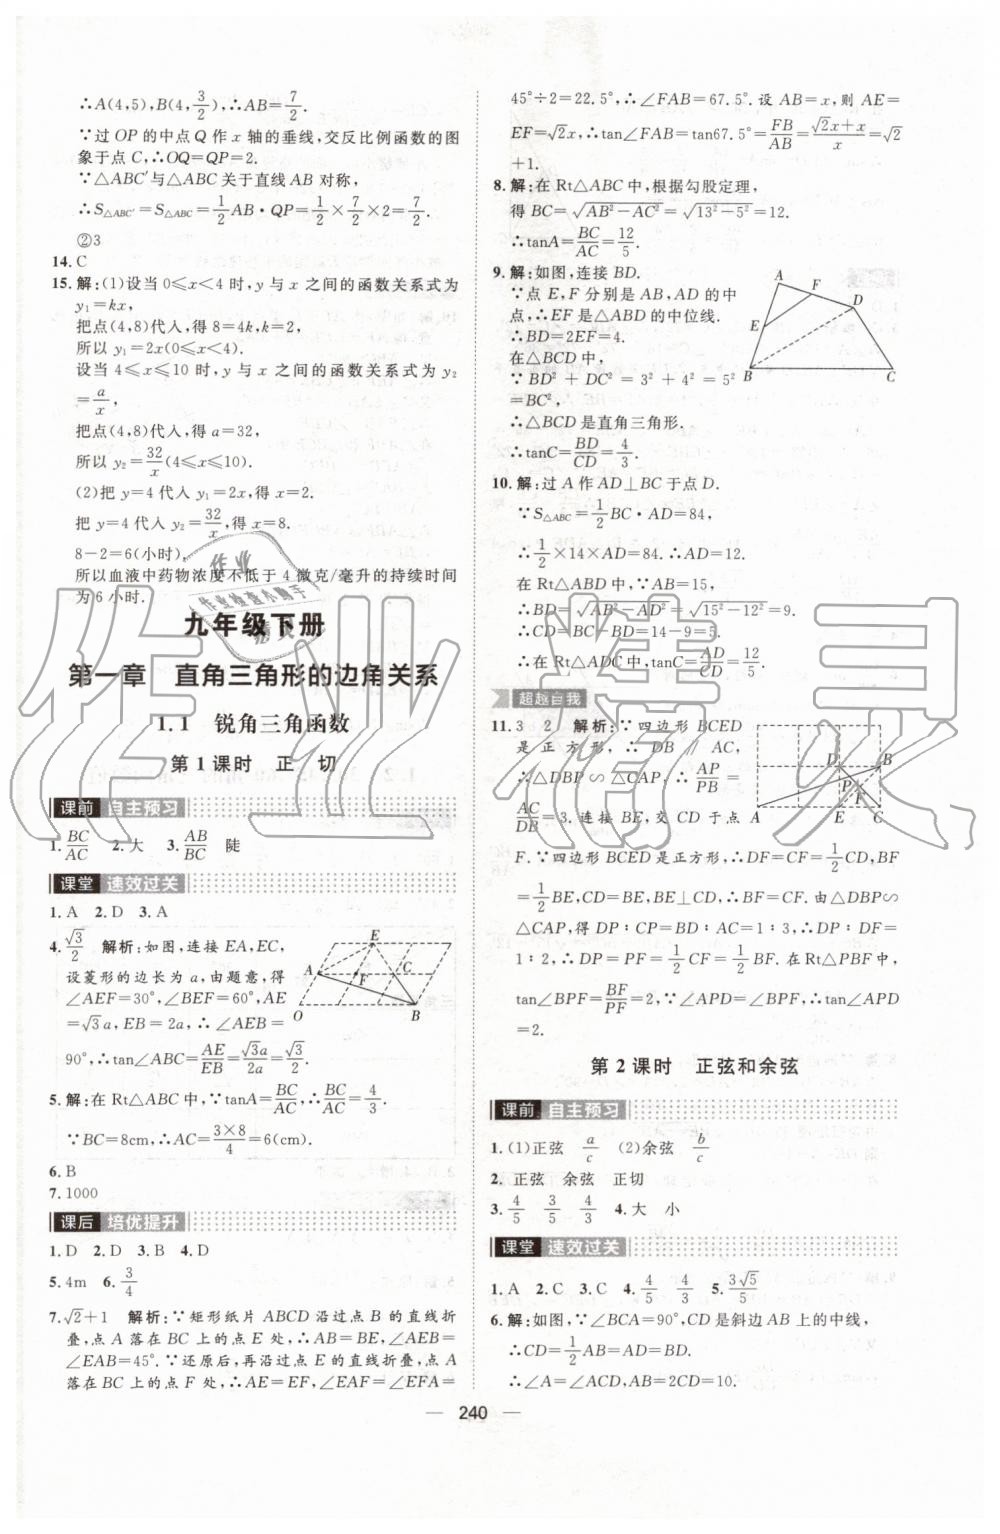 ∴A(4,5),B(4,3/2),∴AB=7/2.
∵过 OP 的中点 Q 作 x 轴的垂线,交反比例函数的图
象于点 C,∴OQ=QP=2.
∵△ABC′与△ABC 关于直线 AB 对称,
∴S△ABC′=S△ABC=1/2AB·QP=1/2×7/2×2=7/2.
②3
14.C
15.解:(1)设当 0≤x<4 时,y 与 x 之间的函数关系式为
y₁=kx,
把点(4,8)代入,得 8=4k,k=2,
所以 y₁=2x(0≤x<4).
设当 4≤x≤10 时,y 与 x 之间的函数关系式为 y₂
=a/x,
把点(4,8)代入,得 a=32,
所以 y₂=32/x(4≤x≤10).
(2)把 y=4 代入 y₁=2x,得 x=2.
把 y=4 代入 y₂=32/x,得 x=8.
8-2=6(小时),
所以血液中药物浓度不低于 4 微克/毫升的持续时间
为 6 小时.
九年级下册
第一章 直角三角形的边角关系
1.1 锐角三角函数
第 1 课时 正 切
课前 自主预习
1.BC/AC 2.大 3.AB/BC 陡
课堂 速效过关
1.A 2.D 3.A
4.√3/2 解析:如图,连接 EA,EC,
设菱形的边长为 a,由题意,得
∠AEF=30°,∠BEF=60°,AE
=√3a,EB=2a,∴∠AEB=
90°,∴tan∠ABC=AE/EB=√3a/2a=√3/2.
E
A
F
C
O
B
5.解:在 Rt△ABC 中,∵tanA=BC/AC,∴BC/AC=4/3.
∵BC=8cm,∴AC=3×8/4=6(cm).
6.B
7.1000
课后 培优提升
1.D 2.D 3.B 4.D
5.4m 6.3/4
7.√2+1 解析:∵矩形纸片 ABCD 沿过点 B 的直线折
叠,点 A 落在 BC 上的点 E 处,∴AB=BE,∠AEB=
∠EAB=45°.∵还原后,再沿过点 E 的直线折叠,点 A
落在 BC 上的点 F 处,∴AE=EF,∠EAF=∠EFA=
45°÷2=22.5°,∴∠FAB=67.5°.设 AB=x,则 AE=
EF=√2x,∴tan∠FAB=tan67.5°=FB/AB=(√2x+x)/x=√2
+1.
8.解:在 Rt△ABC 中,根据勾股定理,
得 BC=√(AB²-AC²)=√(13²-5²)=12.
∴tanA=BC/AC=12/5.
9.解:如图,连接 BD.
∵点 E,F 分别是 AB,AD 的中
点,∴EF 是△ABD 的中位线.
∴BD=2EF=4.
在△BCD 中,
∵BD²+DC²=3²+4²=5²
=BC²,
∴△BCD 是直角三角形.
∴tanC=BD/CD=4/3.
A
F
D
E
B
C
10.解:过 A 作 AD⊥BC 于点 D.
∵S△ABC=1/2BC·AD=84,
∴1/2×14×AD=84.∴AD=12.
在 Rt△ABD 中,∵AB=15,
∴BD=√(AB²-AD²)=√(15²-12²)=9.
∴CD=BC-BD=14-9=5.
在 Rt△ADC 中,tanC=AD/CD=12/5.
超越自我
11.3 2 解析:∵四边形 BCED
是正方形,∴DB∥AC,
∴△DBP∽△CAP,∴AP/PB=
AC/DB=3.连接 BE,交 CD 于点
D
B
P
F
A
E
C
F.∵四边形 BCED 是正方形,∴DF=CF=1/2CD,BF
=1/2BE,CD=BE,BE⊥CD,∴BF=CF.∵△DBP∽
△CAP,得 DP∶CP=DB∶AC=1∶3,∴DP∶DF=
1∶2,∴DP=PF=1/2CF=1/2BF.在 Rt△PBF 中,
tan∠BPF=BF/PF=2,∵∠APD=∠BPF,∴tan∠APD
=2.
第 2 课时 正弦和余弦
课前 自主预习
1.(1)正弦 a/c (2)余弦 b/c
2.正弦 余弦 正切
3.4/5 3/5 4/3 4.大 小
课堂 速效过关
1.A 2.C 3.C 4.4/5 3/4 5.3√5/5
6.解:如图,∵∠BCA=90°,CD 是斜边 AB 上的中线,
∴CD=1/2AB=AD.
∴∠A=∠ACD,AB=2CD=10.
240